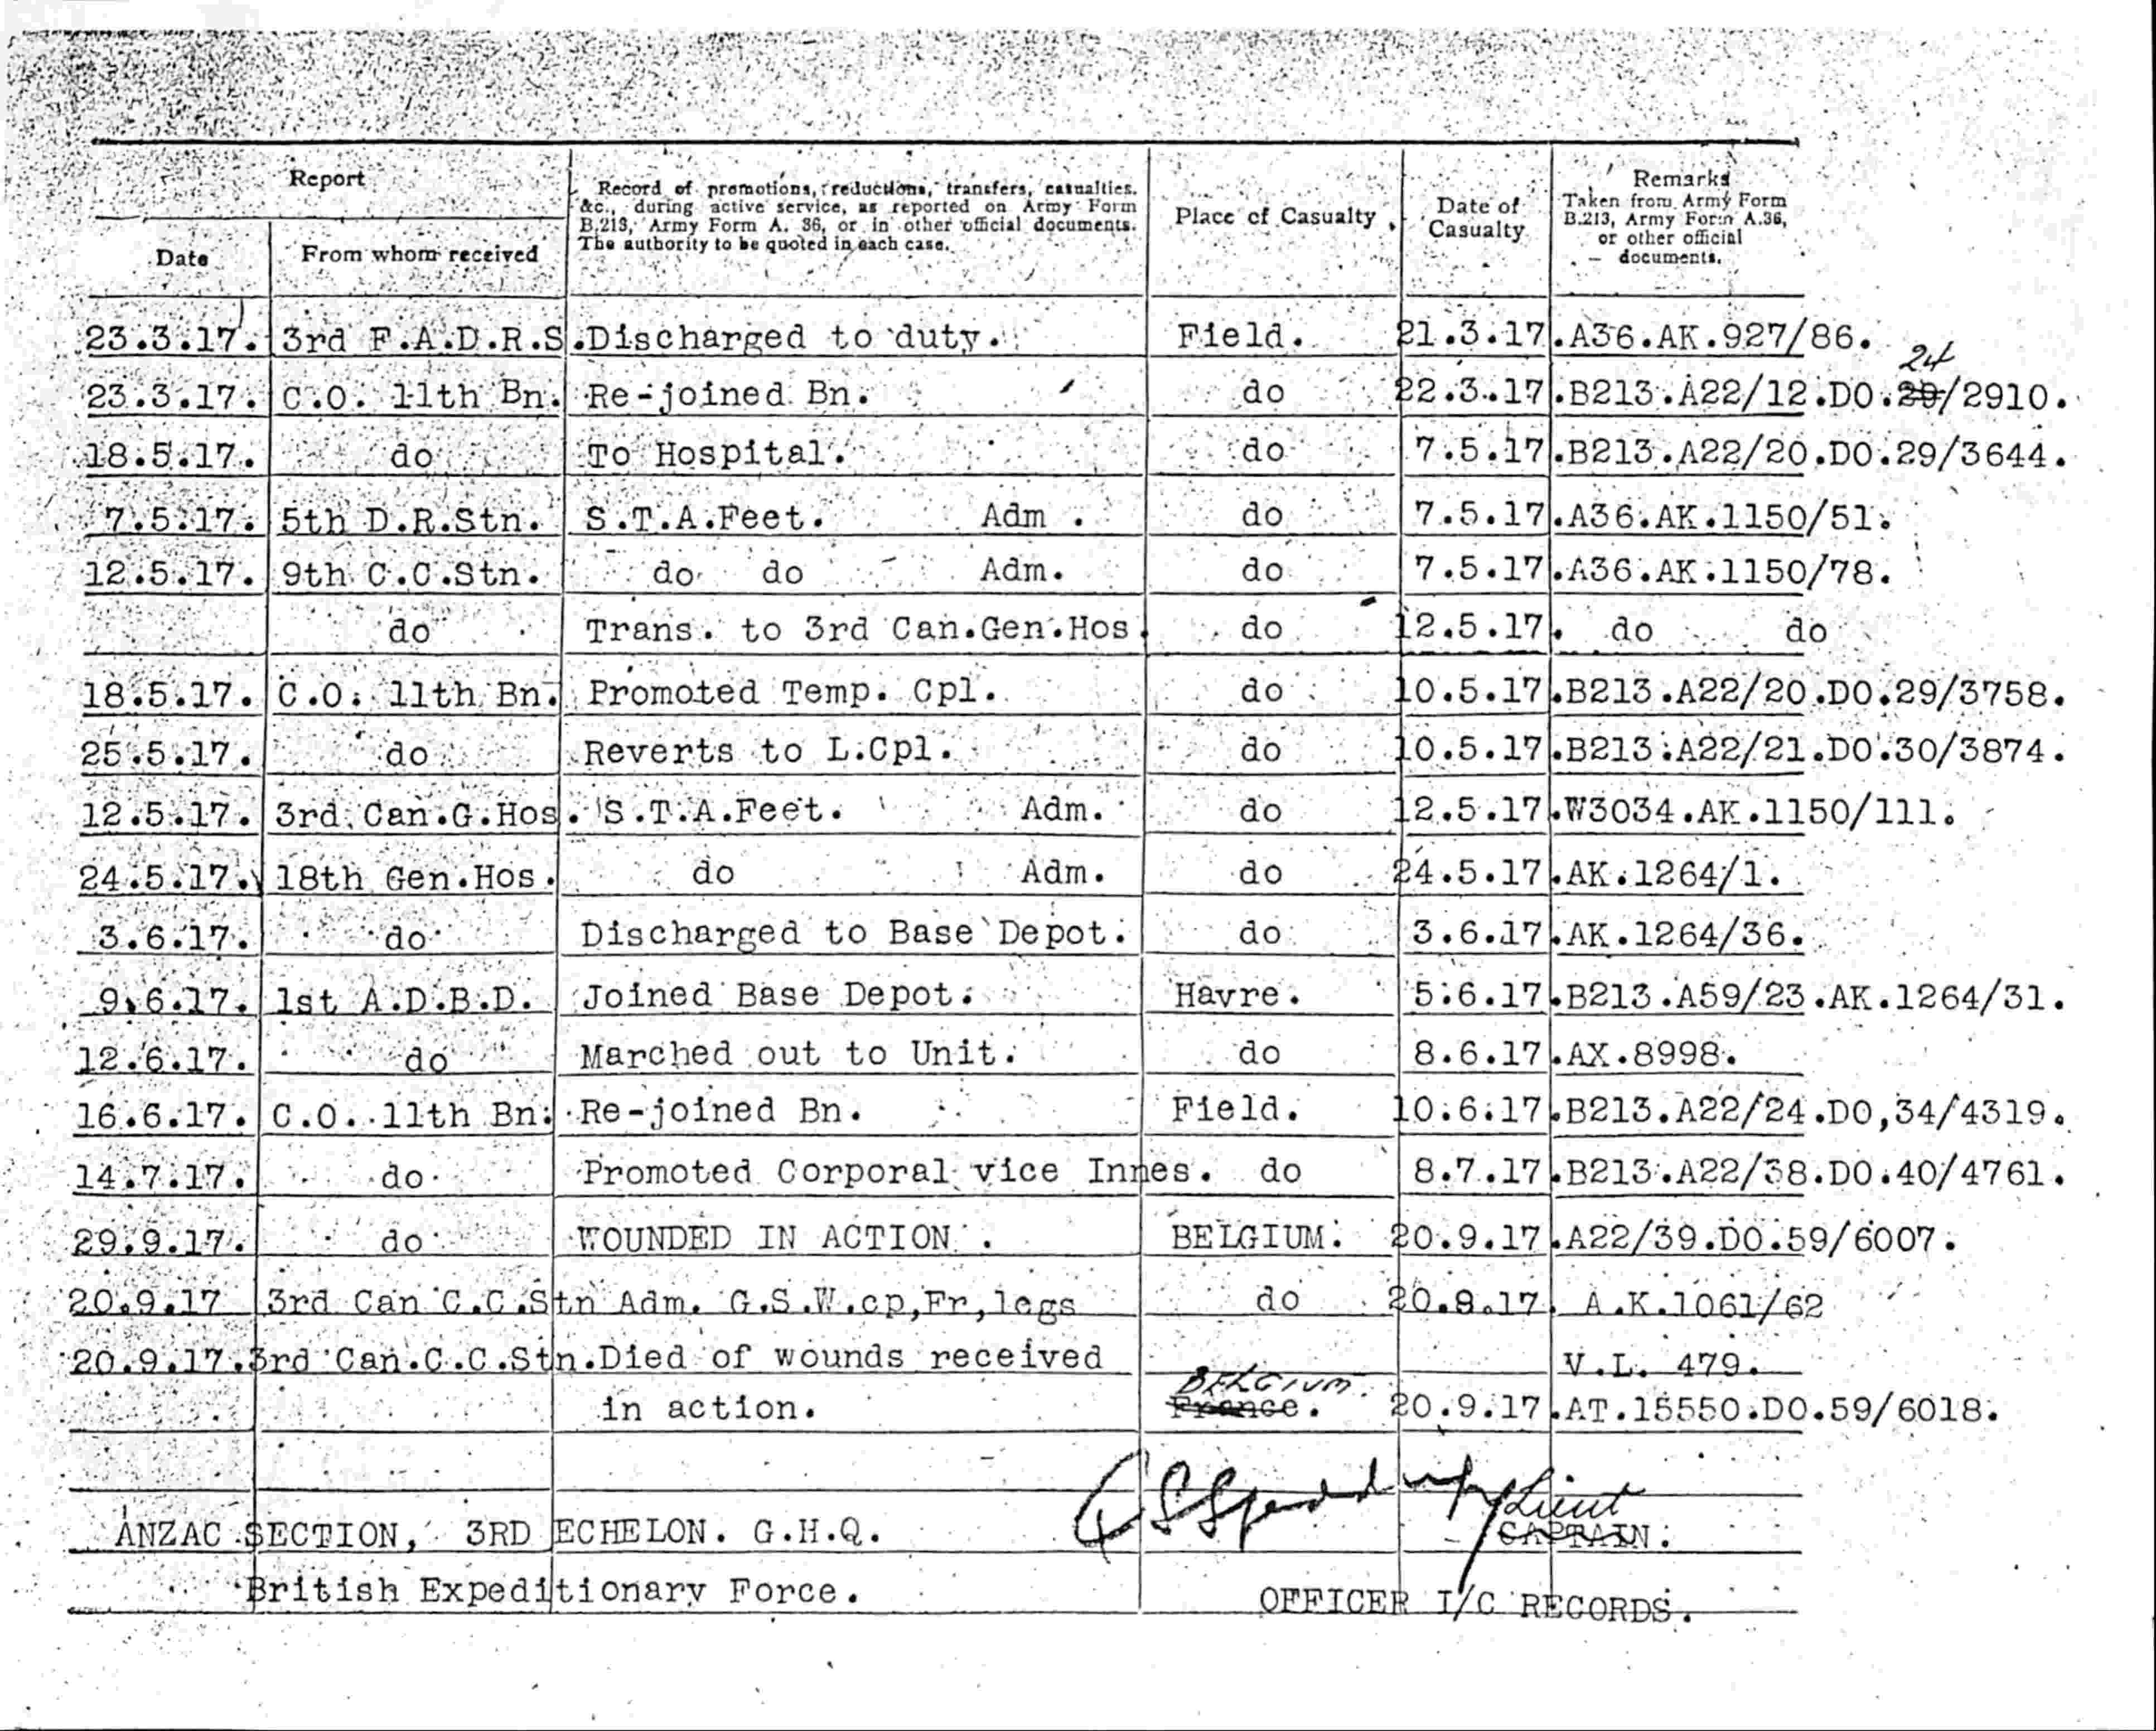 Report
Record of promotions, reductions, transfers, casualties,
&c., during active service, as reported on Army Form
B.213, Army Form A. 36, or in other official documents.
The authority to be quoted in each case.
Place of Casualty
Date of
Casualty
Remarks
Taken from Army Form
B.213, Army Form A.36,
or other official
documents.
Date From whom received
23.3.17. 3rd F.A.D.R.S. Discharged to duty. Field. 21.3.17. A36.AK.927/86.
24
23.3.17. C.O. 11th Bn. Re-joined Bn. do 22.3.17. B213.A22/12.DO.29/2910.
18.5.17. do To Hospital. do 7.5.17. B213.A22/20.DO.29/3644.
7.5.17. 5th D.R.Stn. S.T.A.Feet. Adm . do 7.5.17. A36.AK.1150/51.
12.5.17. 9th C.C.Stn. do do Adm. do 7.5.17. A36.AK.1150/78.
do Trans. to 3rd Can.Gen.Hos. do 12.5.17. do do
18.5.17. C.O. 11th Bn. Promoted Temp. Cpl. do 10.5.17. B213.A22/20.DO.29/3758.
25.5.17. do Reverts to L.Cpl. do 10.5.17. B213.A22/21.DO.30/3874.
12.5.17. 3rd Can.G.Hos. S.T.A.Feet. Adm. do 12.5.17. W3034.AK.1150/111.
24.5.17. 18th Gen.Hos. do Adm. do 24.5.17. AK.1264/1.
3.6.17. do Discharged to Base Depot. do 3.6.17. AK.1264/36.
9.6.17. 1st A.D.B.D. Joined Base Depot. Havre. 5.6.17. B213.A59/23.AK.1264/31.
12.6.17. do Marched out to Unit. do 8.6.17. AX.8998.
16.6.17. C.O. 11th Bn. Re-joined Bn. Field. 10.6.17. B213.A22/24.DO,34/4319.
14.7.17. do Promoted Corporal vice Innes. do 8.7.17. B213.A22/38.DO.40/4761.
29.9.17. do WOUNDED IN ACTION . BELGIUM. 20.9.17. A22/39.DO.59/6007.
20.9.17 3rd Can C.C.Stn Adm. G.S.W.cp,Fr,legs do 20.9.17. A.K.1061/62
20.9.17. 3rd Can.C.C.Stn. Died of wounds received V.L. 479.
BELGIUM.
in action. France. 20.9.17. AT.15550.DO.59/6018.
Lieut
ANZAC SECTION, 3RD ECHELON. G.H.Q. CAPTAIN.
British Expeditionary Force. OFFICER I/C RECORDS.